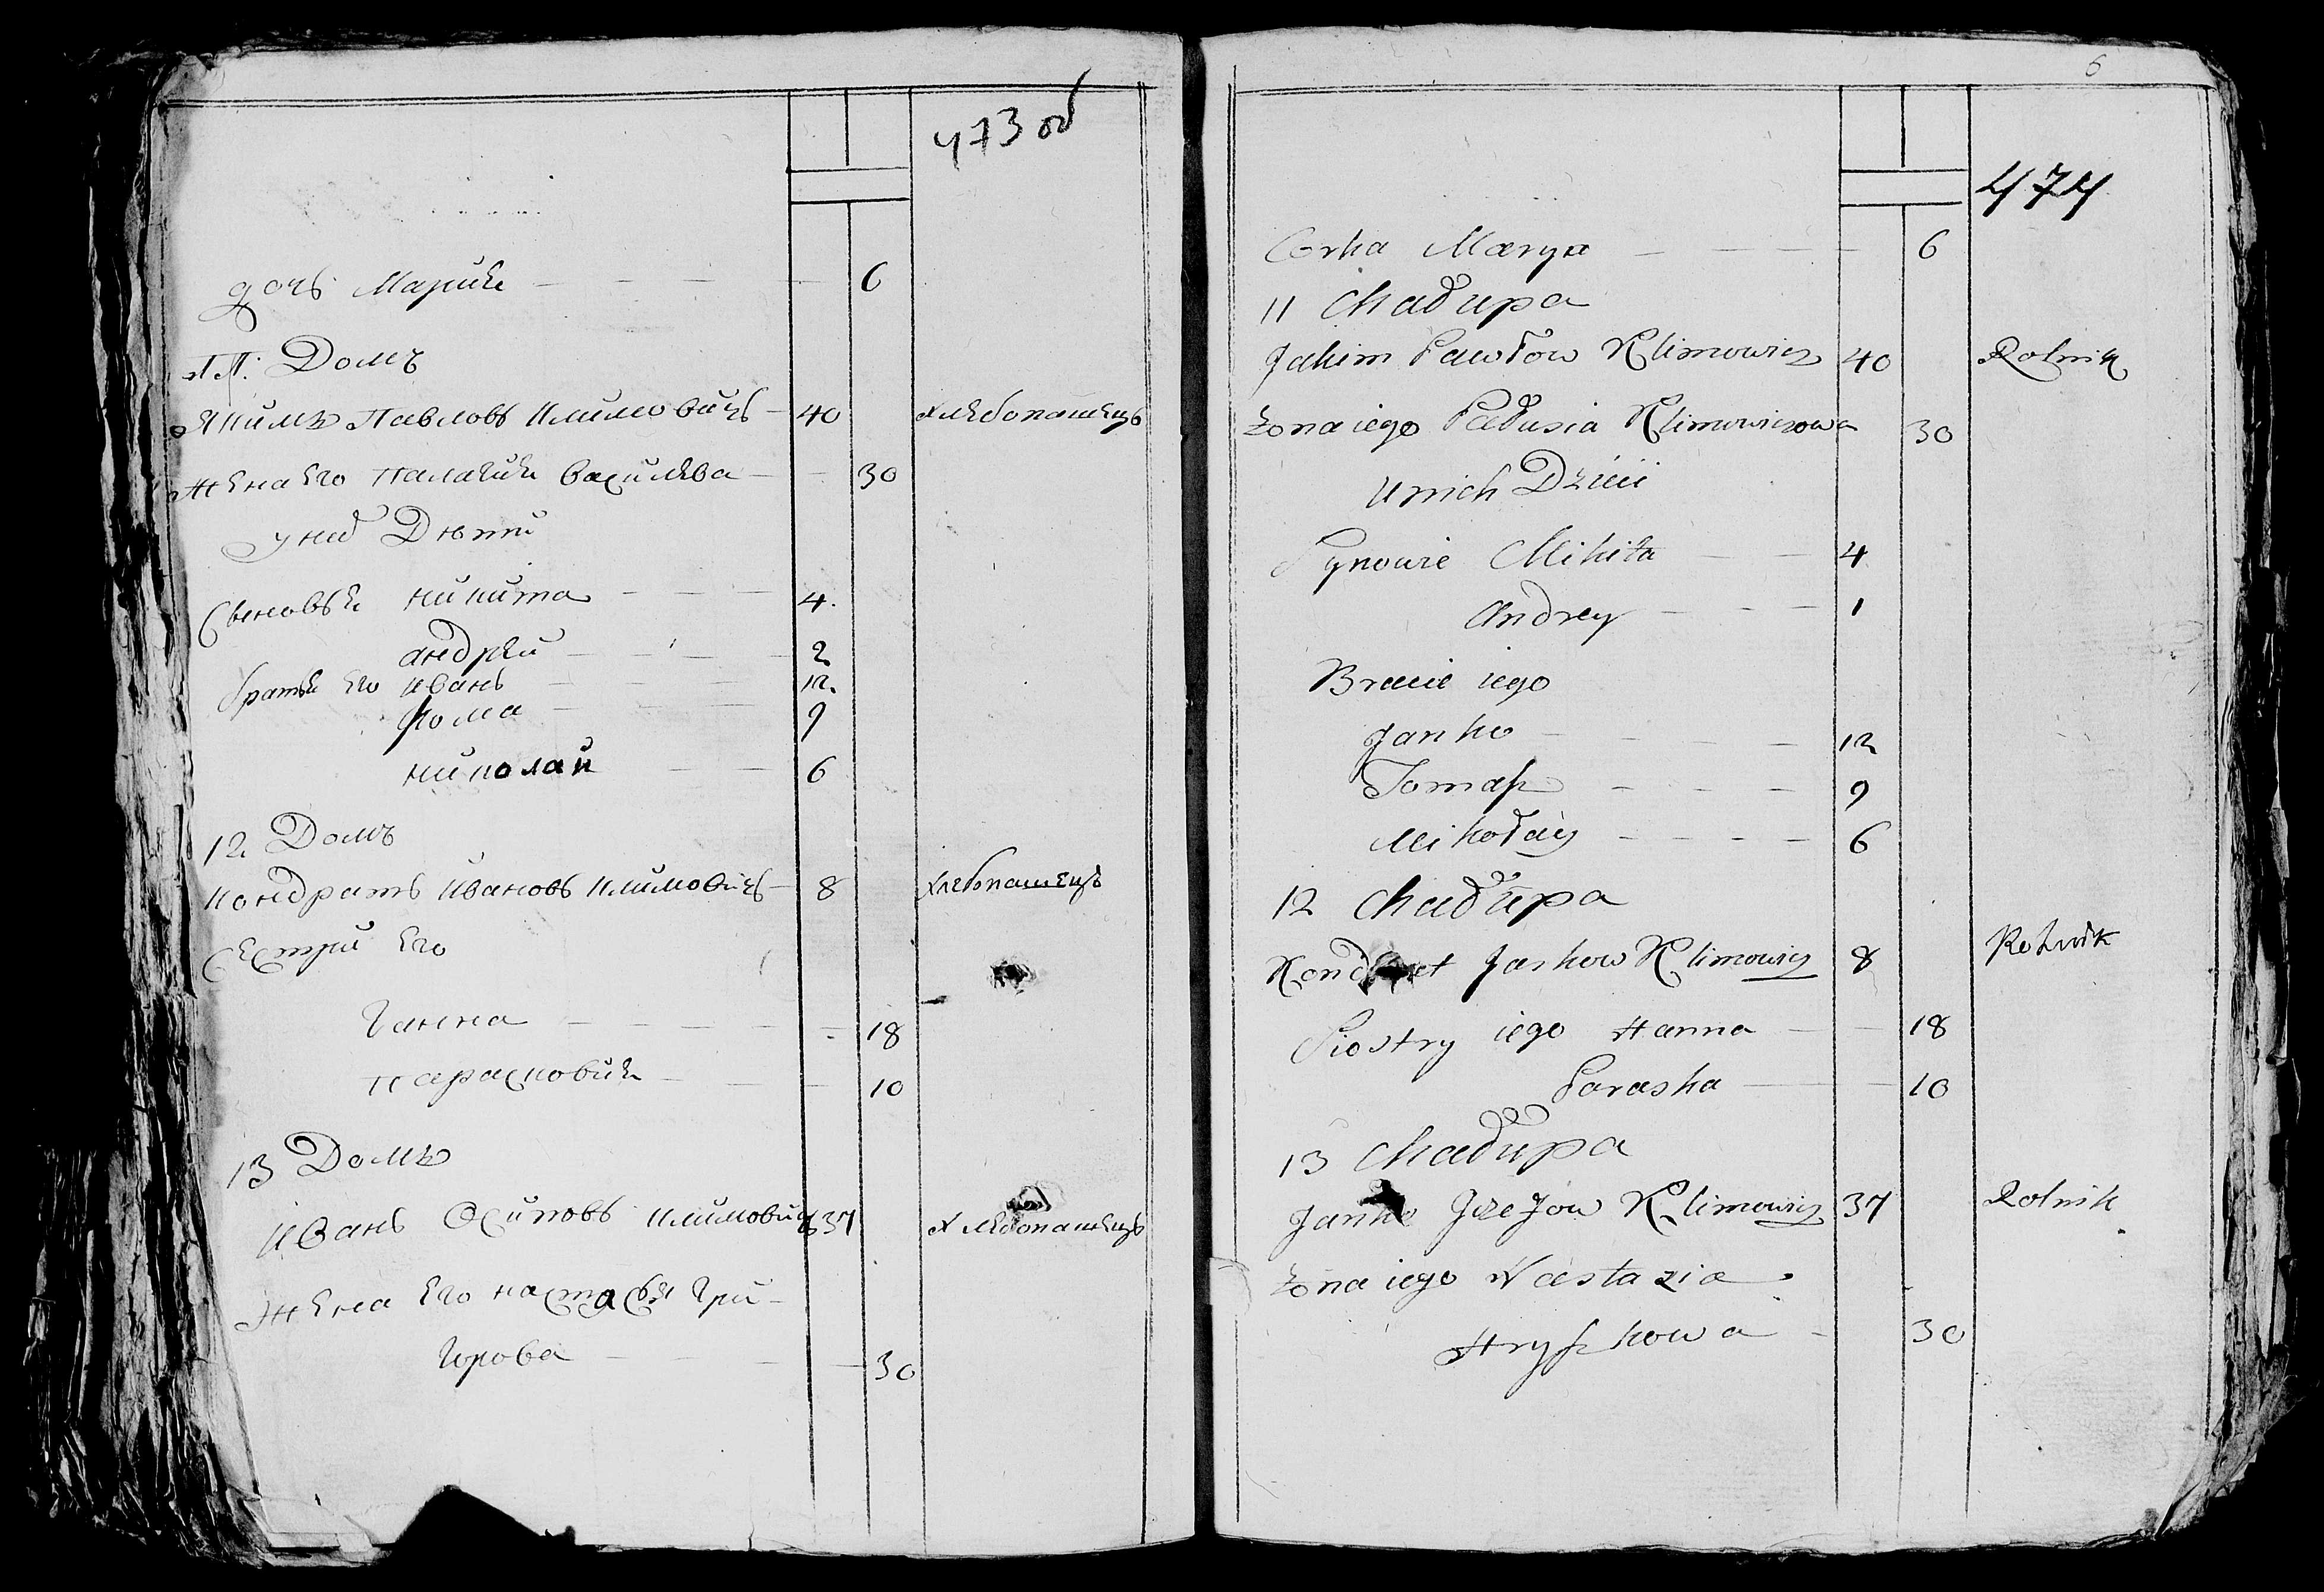 473 об
дочь Мария 6
11. Домъ
Якимъ Павловъ Климовичъ 40 Хлебопашецъ
Жена его Палагия Василева 30
у них Дѣти
Сыновья Никита 4.
андрей 2
братья его Иванъ 12.
Фома 9
николай 6
12 Домъ
Кондратъ Ивановъ Климовичъ 8 Хлебопашецъ
Сестри его
Ганна 18
Парасковия 10
13 Домъ
Иванъ Осиповъ Климовичъ 37 Хлебопашецъ
Жена его настасья Гри-
горова 30
6
474
Corka Marya 6
11 Chałupa
Jakim Pawłow Klimowicz 40 Rolnik
Żona iego Pałusia Klimowiczowa 30
U nich Dzieci
Synowie Mikita 4
Andrey 1
Bracie iego
Janko 12
Tomasz 9
Mikołay 6
12 Chałupa
Kondrat Jaskow Klimowicz 8 Rolnik
Siostry iego Hanna 18
Paraska 10
13 Chałupa
Janko Jozefow Klimowicz 37 Rolnik
Żona iego Nastazia
Hryszkowa 30